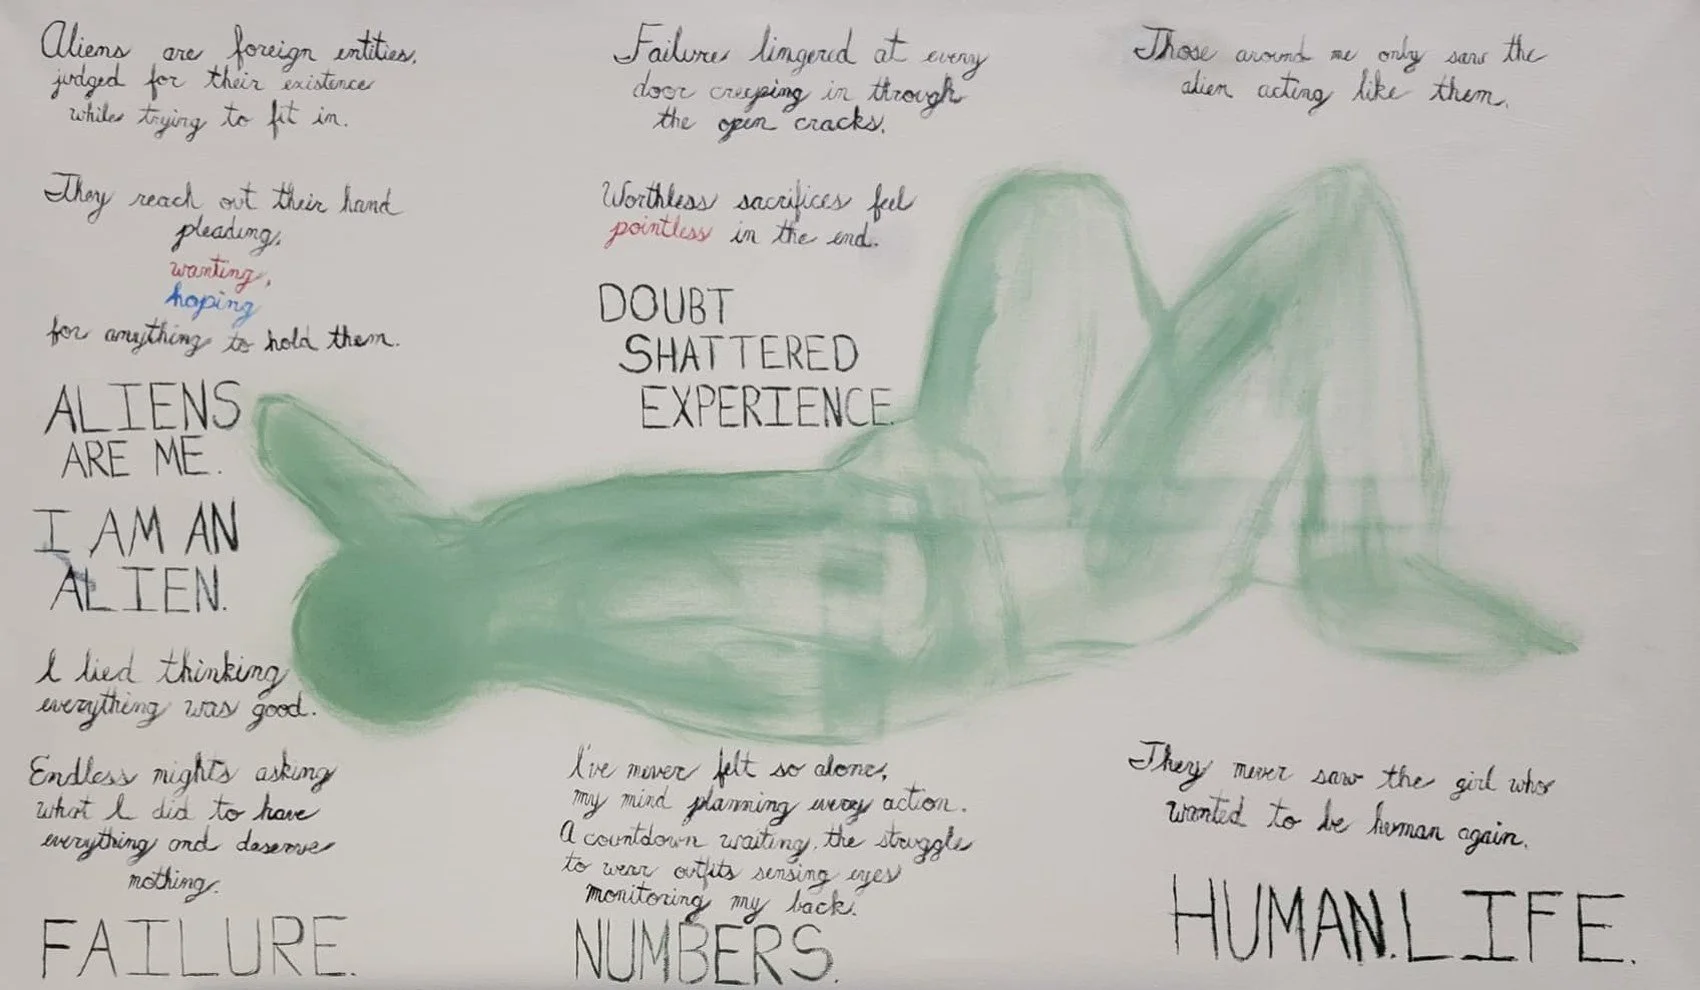 Aliens are foreign entities,
judged for their existence
while trying to fit in.
They reach out their hand
pleading,
wanting,
hoping
for anything to hold them.
ALIENS
ARE ME.
I AM AN
ALIEN.
I lied thinking
everything was good.
Endless nights asking
what I did to have
everything and deserve
nothing.
FAILURE.
Failure lingered at every
door creeping in through
the open cracks.
Worthless sacrifices feel
pointless in the end.
DOUBT
SHATTERED
EXPERIENCE.
I've never felt so alone,
my mind planning every action.
A countdown waiting, the struggle
to wear outfits sensing eyes
monitoring my back.
NUMBERS.
Those around me only saw the
alien acting like them.
They never saw the girl who
wanted to be human again.
HUMAN.LIFE.